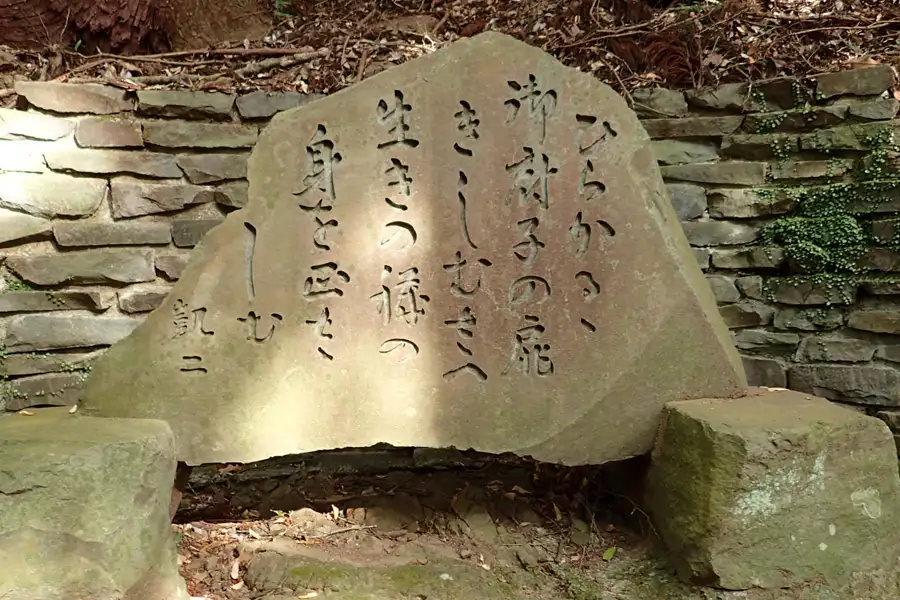 ひらかるゝ
御厨子の扉
きしむさへ
生きの裸の
身を正さ
しむ
凱二